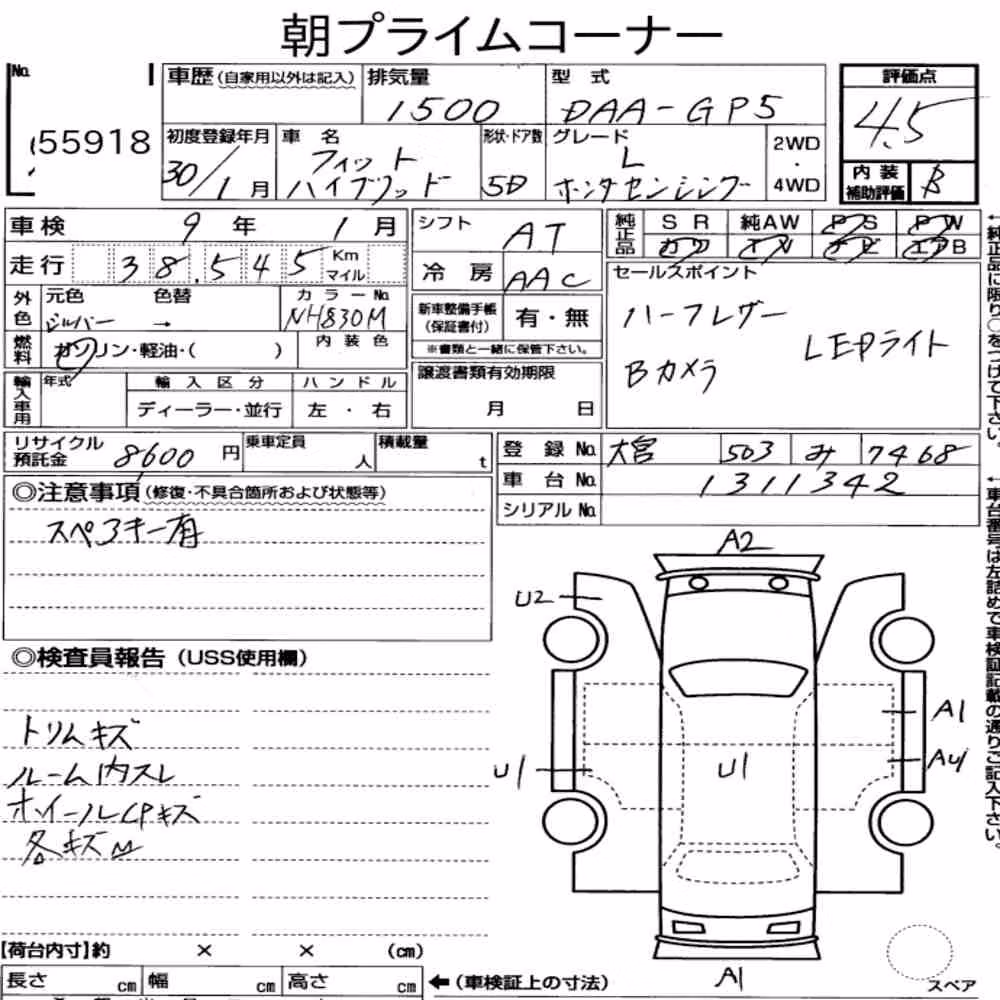 朝プライムコーナー
No.
55918
車歴(自家用以外は記入)
排気量
1500
型式
DAA-GP5
評価点
4.5
初度登録年月
30/1月
車名
フィット
ハイブリッド
形状・ドア数
5D
グレード
L
ホンダセンシング
2WD
・
4WD
内装
補助評価
B
車検 9年 1月
走行 38,545 Km
マイル
外色
元色
シルバー
色替
→
カラーNo.
NH830M
燃料
ガソリン・軽油・( )
内装色
輸入車用
年式
輸入区分
ディーラー・並行
ハンドル
左・右
シフト
AT
冷房
AAC
新車整備手帳
(保証書付)
有・無
※書類と一緒に保管下さい。
譲渡書類有効期限
月 日
純正品
SR 純AW PS PW
カワ TV ナビ エアB
セールスポイント
ハーフレザー
LEDライト
Bカメラ
←純正品に限り○をつけて下さい。
リサイクル
預託金
8600円
乗車定員
人
積載量
t
登録No. 大宮 503 み 7468
車台No. 1311342
シリアルNo.
←車台番号は左詰めで車検証記載の通りご記入下さい。
◎注意事項(修復・不具合箇所および状態等)
スペアキー有
◎検査員報告(USS使用欄)
トリムキズ
ルーム内スレ
ホイールCPキズ
各キズ
A2
U2
A1
U1
U1
A1
スペア
【荷台内寸】約 × × (cm)
長さ cm 幅 cm 高さ cm
←(車検証上の寸法)